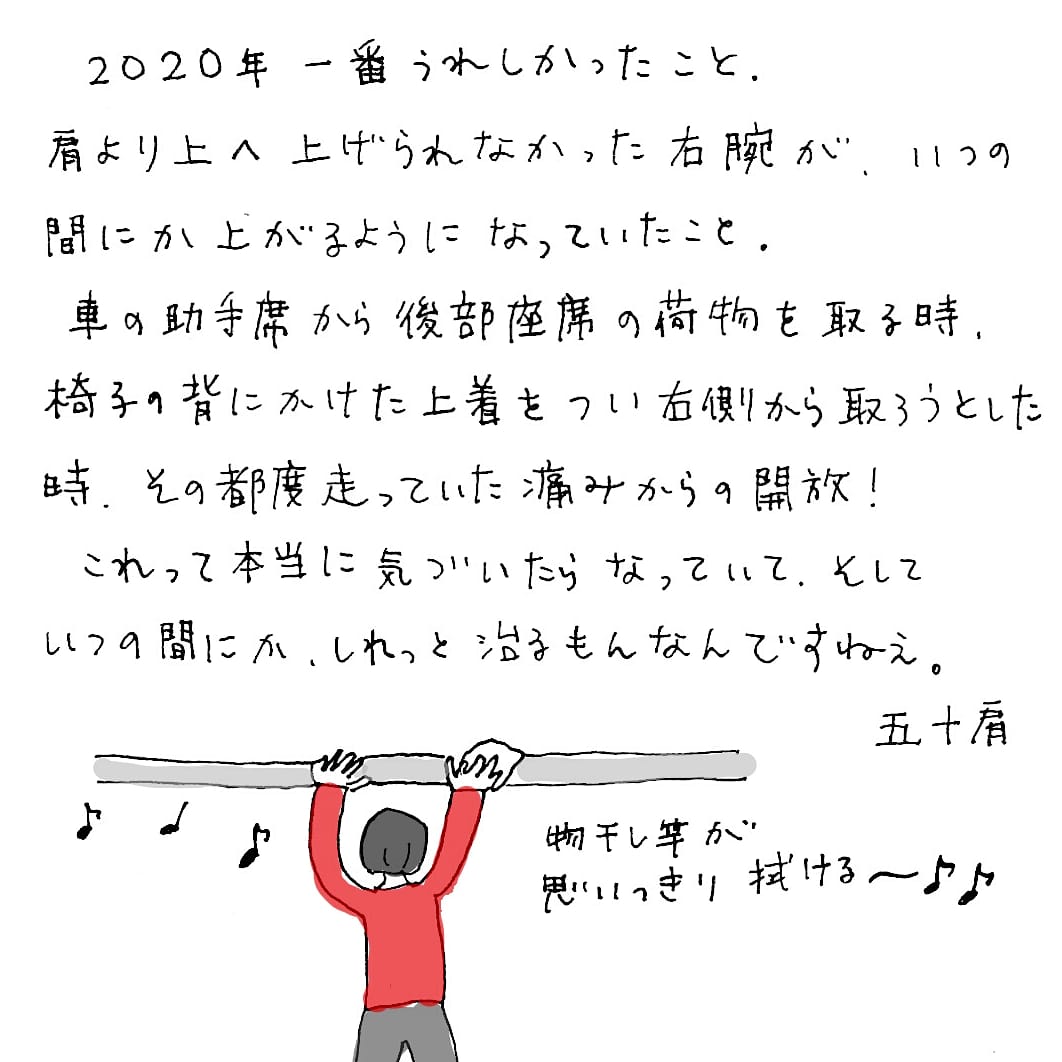 2020年 一番うれしかったこと.
肩より上へ 上げられなかった右腕が、いつの
間にか上がるようになっていたこと.
車の助手席から後部座席の荷物を取る時、
椅子の背にかけた上着をつい右側から取ろうとした
時、その都度走っていた痛みからの開放!
これって本当に気づいたらなっていて、そして
いつの間にか、しれっと治るもんなんですねえ。
五十肩
物干し竿が
思いっきり 拭ける〜♪♪